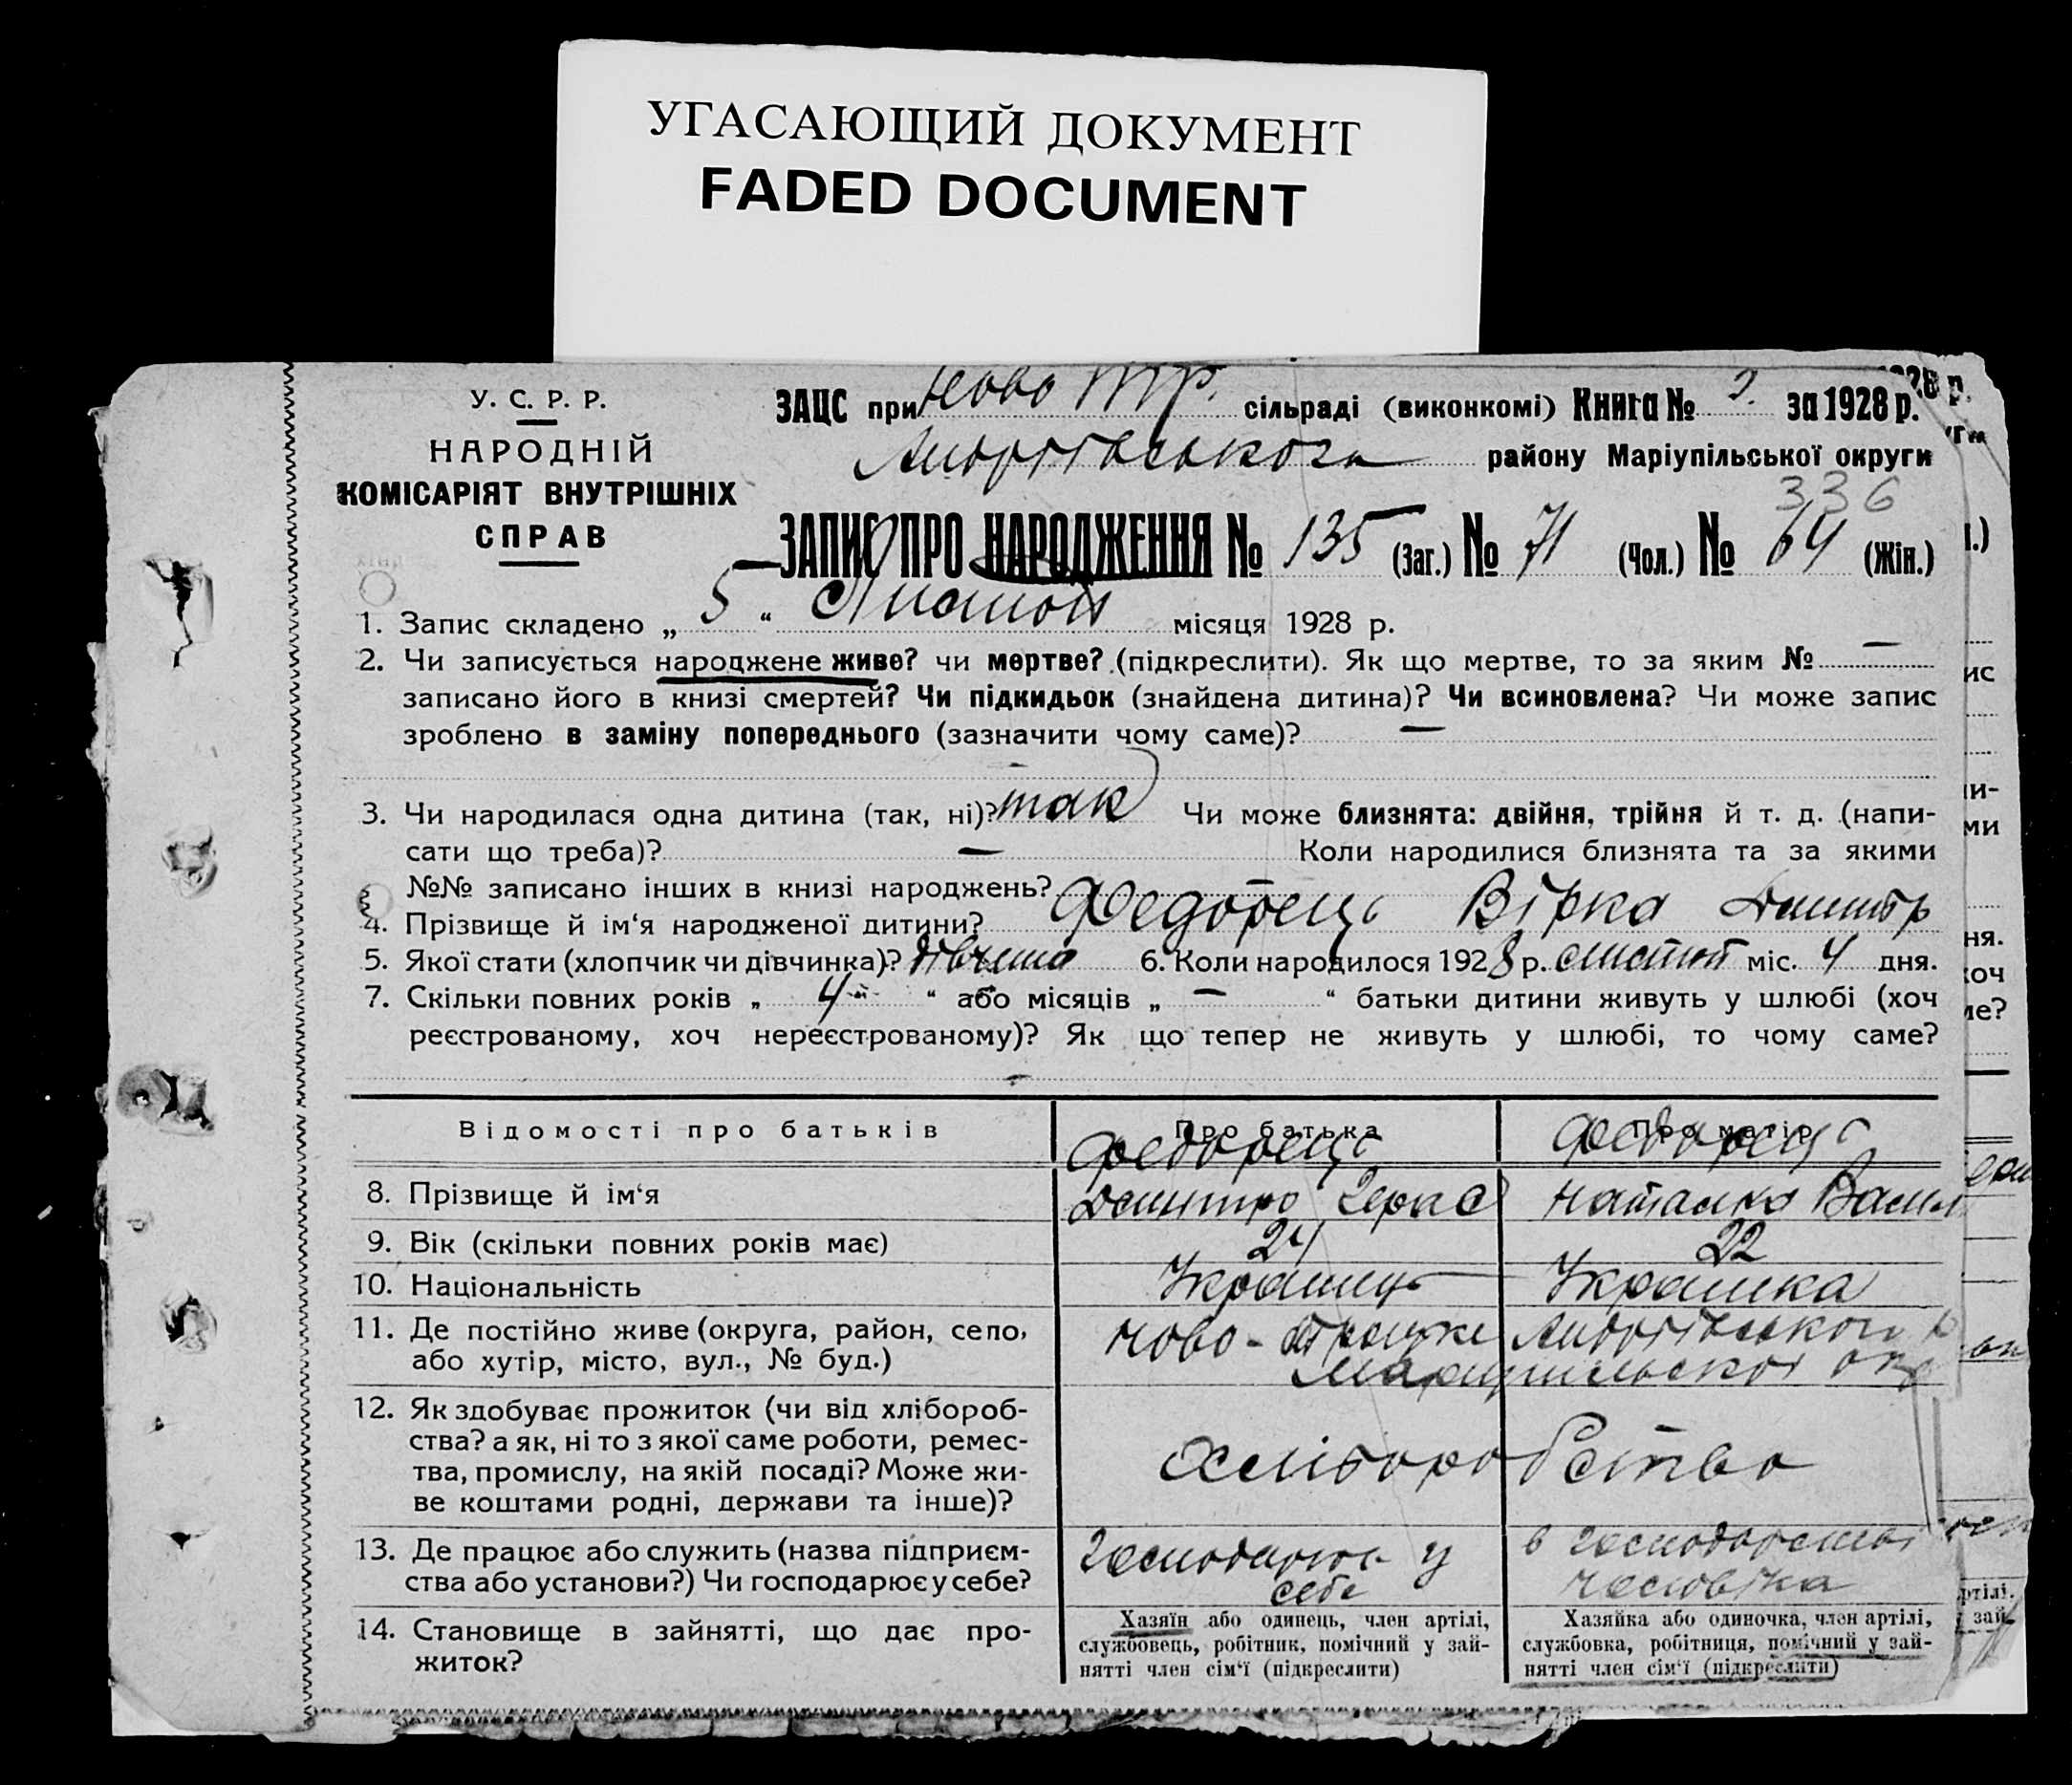 УГАСАЮЩИЙ ДОКУМЕНТ
FADED DOCUMENT
У. С. Р. Р.
НАРОДНІЙ
КОМІСАРІЯТ ВНУТРІШНІХ
СПРАВ
ЗАЦС при Ново Тр. сільраді (виконкомі) Книга № 2. за 1928 р.
Андріївського району Маріупільської округи
336
ЗАПИС ПРО НАРОДЖЕННЯ № 135 (Заг.) № 71 (Чол.) № 64 (Жін.)
1. Запис складено „ 5 “ Листоп місяця 1928 р.
2. Чи записується народжене живе? чи мертве? (підкреслити). Як що мертве, то за яким № —
записано його в книзі смертей? Чи підкидьок (знайдена дитина)? Чи всиновлена? Чи може запис
зроблено в заміну попереднього (зазначити чому саме)? —
3. Чи народилася одна дитина (так, ні)? так Чи може близнята: двійня, трійня й т. д. (напи-
сати що треба)? — Коли народилися близнята та за якими
№№ записано інших в книзі народжень?
4. Прізвище й ім‘я народженої дитини? Федорець Вірка Дмитр
5. Якої стати (хлопчик чи дівчинка)? дівчина 6. Коли народилося 1928 р. листоп міс. 4 дня.
7. Скільки повних років „ 4 “ або місяців „ — “ батьки дитини живуть у шлюбі (хоч
реєстрованому, хоч нереєстрованому)? Як що тепер не живуть у шлюбі, то чому саме?
—
Відомості про батьків Про батька Про матір
Федорець Федорець
8. Прізвище й ім‘я Дмитро Герас Наталка Васил
9. Вік (скільки повних років має) 24 22
10. Національність Українець Українка
11. Де постійно живе (округа, район, село, Ново-Троїцке Андріївського р
або хутір, місто, вул., № буд.) Маріупільскої окр
12. Як здобуває прожиток (чи від хлібороб-
ства? а як, ні то з якої саме роботи, ремес-
тва, промислу, на якій посаді? Може жи-
ве коштами родні, держави та інше)?
хліборобство
13. Де працює або служить (назва підприєм- Господарює у в господарстві
ства або установи?) Чи господарює у себе? себе чоловіка
14. Становище в зайнятті, що дає про-
житок?
Хазяїн або одинець, член артілі,
службовець, робітник, помічний у зай-
нятті член сім‘ї (підкреслити)
Хазяйка або одиночка, член артілі,
службовка, робітниця, помічний у зай-
нятті член сім‘ї (підкреслити)